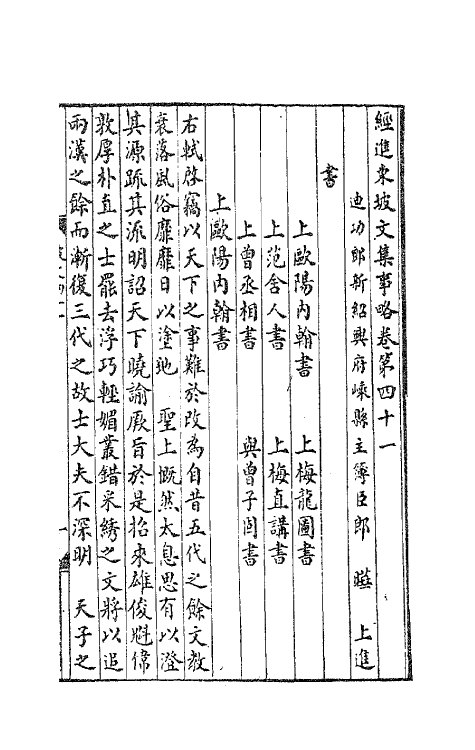 經進東坡文集事略卷第四十一
迪功郎新紹興府嵊縣主簿臣郎　曄　上進
書
上歐陽内翰書　上梅龍圖書
上范舍人書　上梅直講書
上曾丞相書　與曾子固書
上歐陽内翰書
右軾啓竊以天下之事難於改為自昔五代之餘文教
衰落風俗靡靡日以塗地　聖上慨然太息思有以澄
其源疏其流明詔天下曉諭厥旨於是招來雄俊魁偉
敦厚朴直之士罷去浮巧輕媚叢錯采綉之文將以追
兩漢之餘而漸復三代之故士大夫不深明　天子之